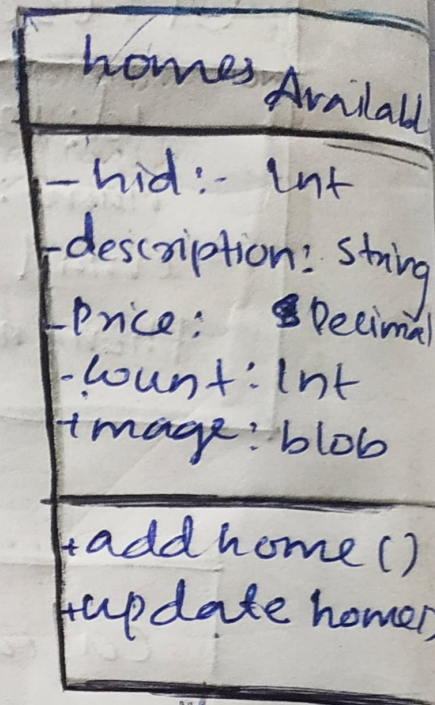 homes Availabl
- hid:- Int
-description: String
-Price: Decimal
-Count: Int
+mage: blob
+add home()
+update homes